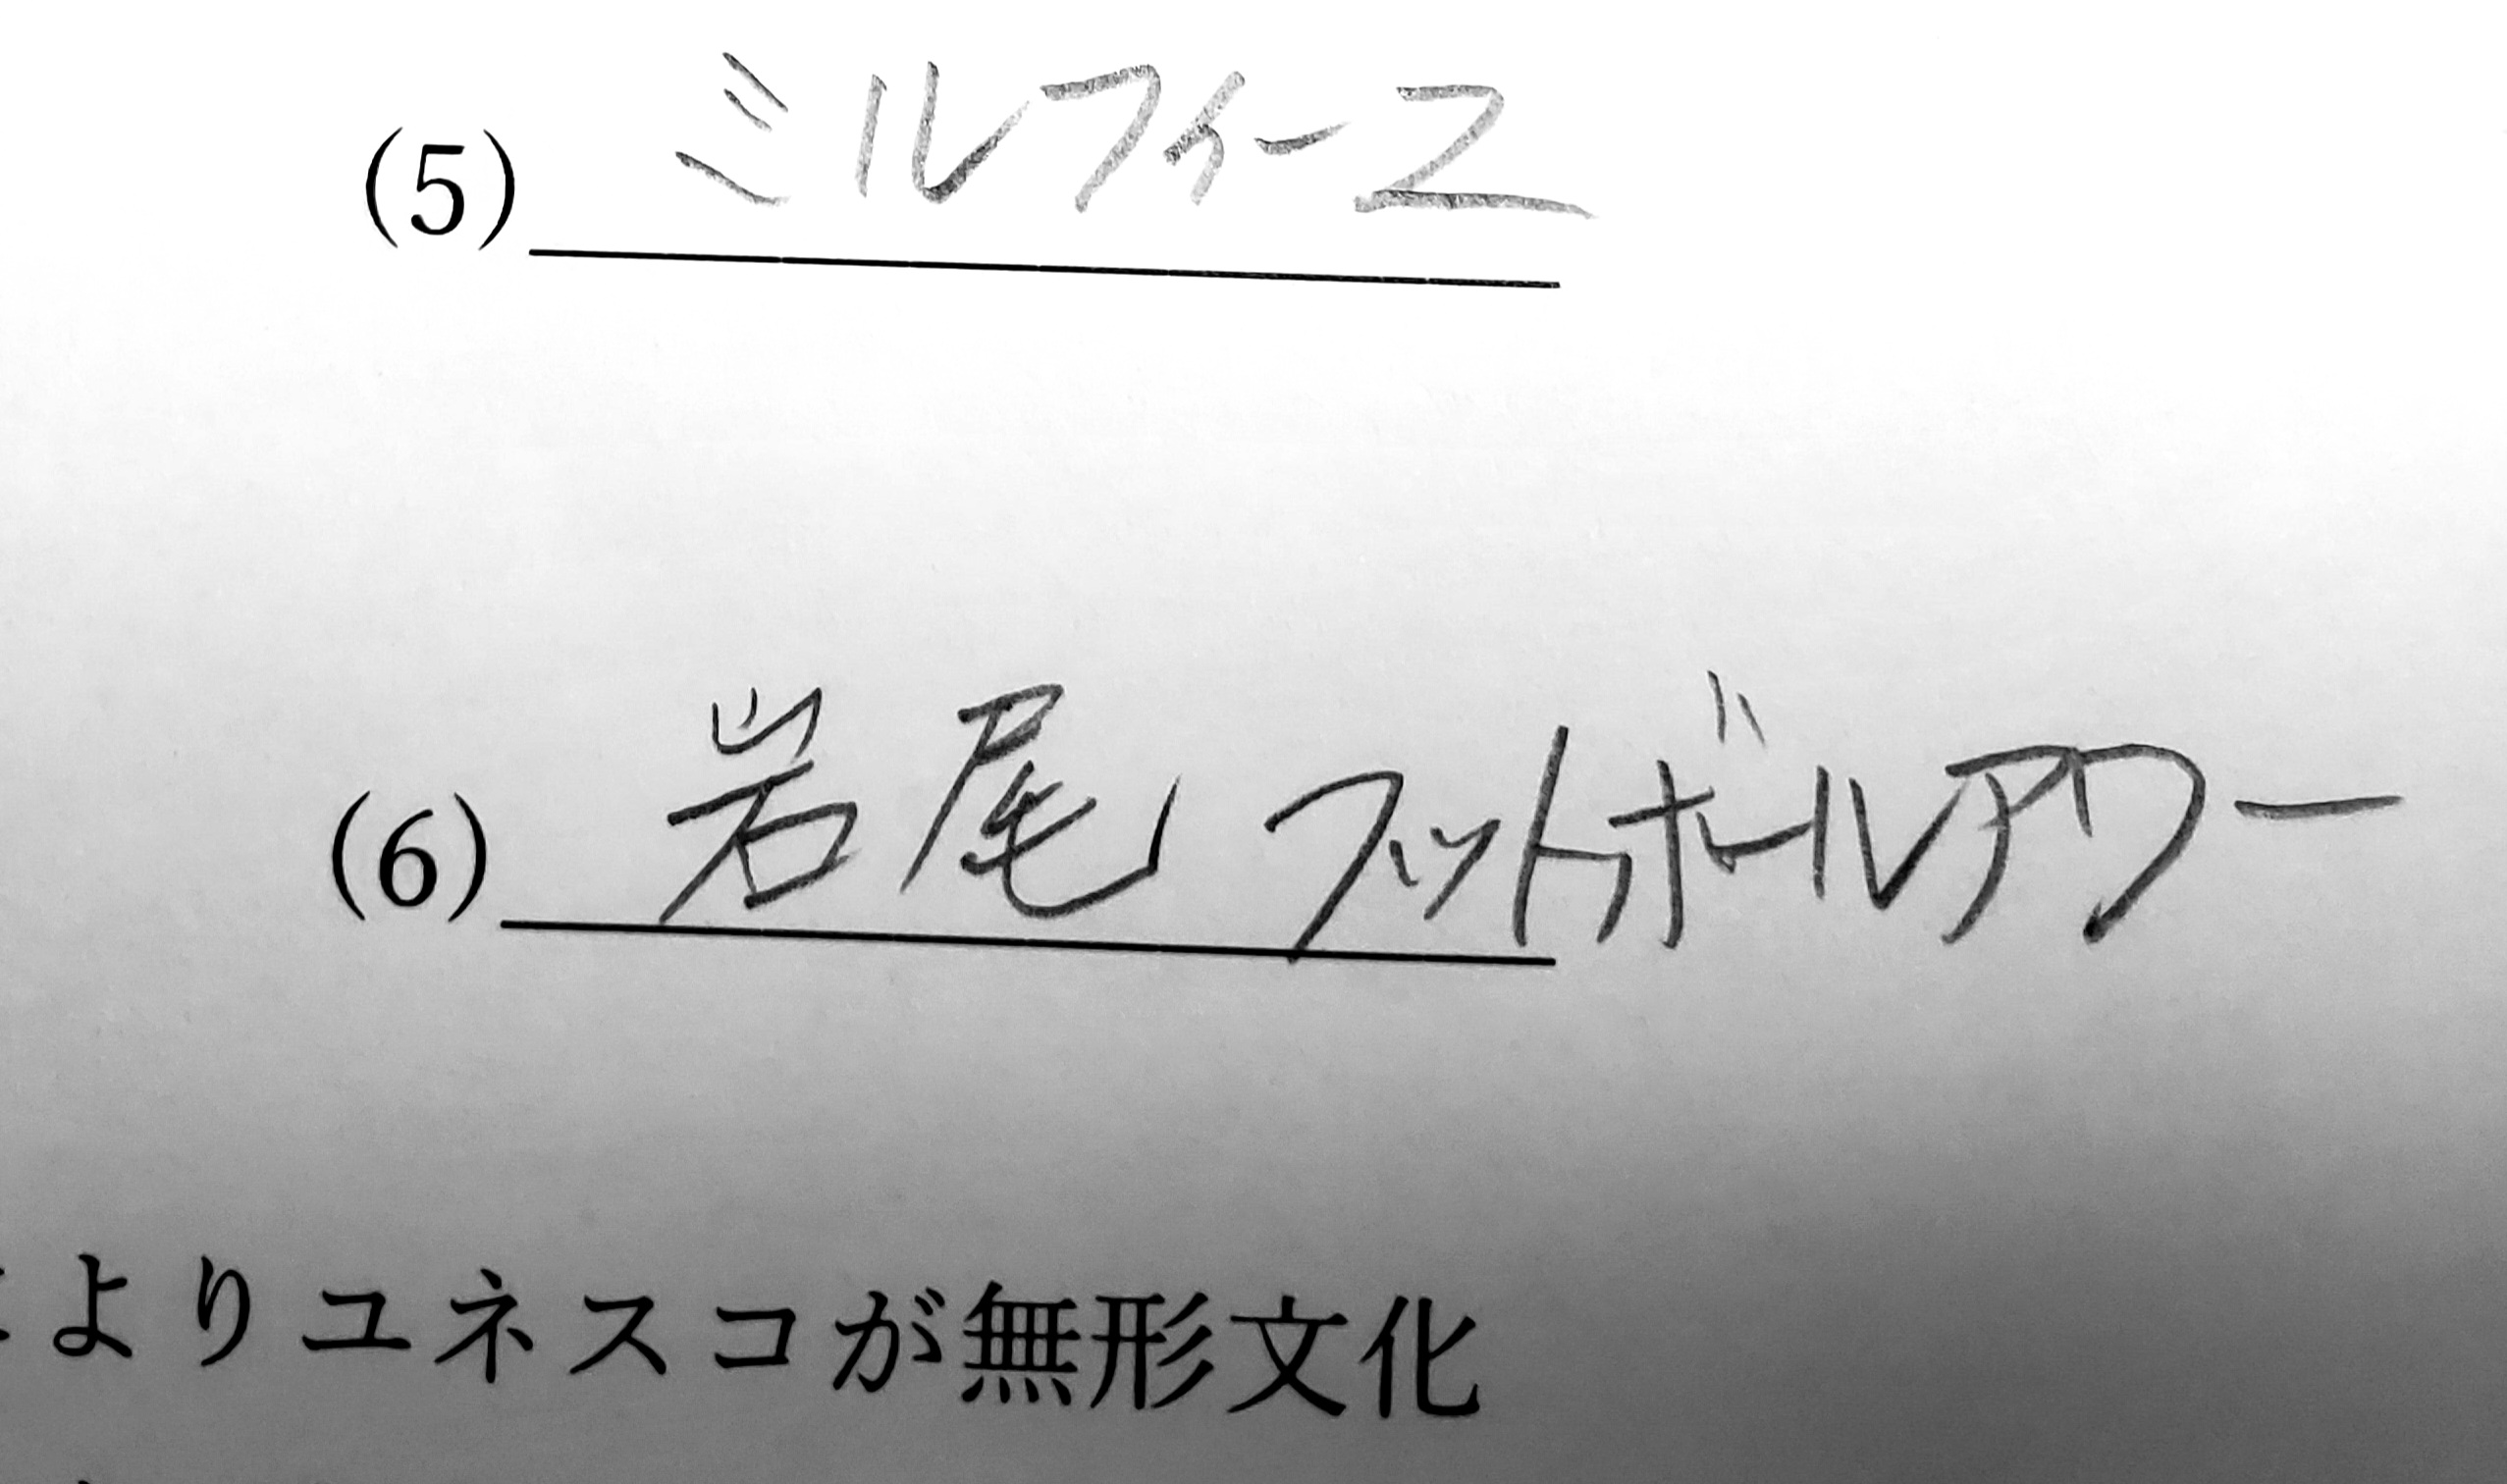 (5) ミルフィーユ
(6) 岩尾 フットボールアワー
よりユネスコが無形文化